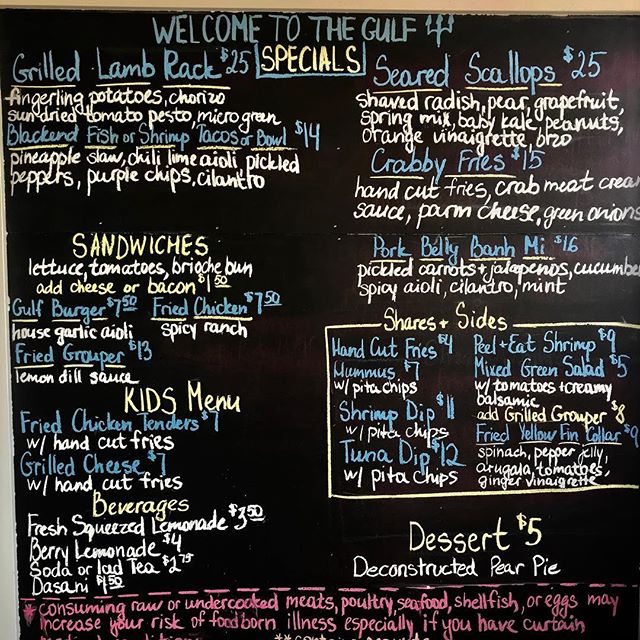 WELCOME TO THE GULF
SPECIALS
Grilled Lamb Rack $25
fingerling potatoes, chorizo
sun dried tomato pesto, micro green
Blackend Fish or Shrimp Tacos or Bowl $14
pineapple slaw, chili lime aioli, pickled
peppers, purple chips, cilantro
Seared Scallops $25
shaved radish, pear, grapefruit,
spring mix, baby kale, peanuts,
orange vinaigrette, brzo
Crabby Fries $15
hand cut fries, crab meat cream
sauce, parm cheese, green onions
SANDWICHES
lettuce, tomatoes, brioche bun
add cheese or bacon $1.50
Gulf Burger $7.50 Fried Chicken $7.50
house garlic aioli spicy ranch
Fried Grouper $13
lemon dill sauce
Pork Belly Banh Mi $16
pickled carrots + jalapenos, cucumber
spicy aioli, cilantro, mint
KIDS Menu
Fried Chicken Tenders $7
w/ hand cut fries
Grilled Cheese $7
w/ hand cut fries
Beverages
Fresh Squeezed Lemonade $3.50
Berry Lemonade $4
Soda or Iced Tea $2.75
Dasani $1.50
Shares + Sides
Hand Cut Fries $4
Hummus $7
w/ pita chips
Shrimp Dip $11
w/ pita chips
Tuna Dip $12
w/ pita chips
Peel + Eat Shrimp $9
Mixed Green Salad $5
w/ tomatoes + creamy
balsamic
add Grilled Grouper $8
Fried Yellow Fin Collar $9
spinach, pepper jelly,
arugala, tomatoes,
ginger vinaigrette
Dessert $5
Deconstructed Pear Pie
* consuming raw or undercooked meats, poultry, seafood, shellfish, or eggs may
increase your risk of foodborn illness especially if you have curtain